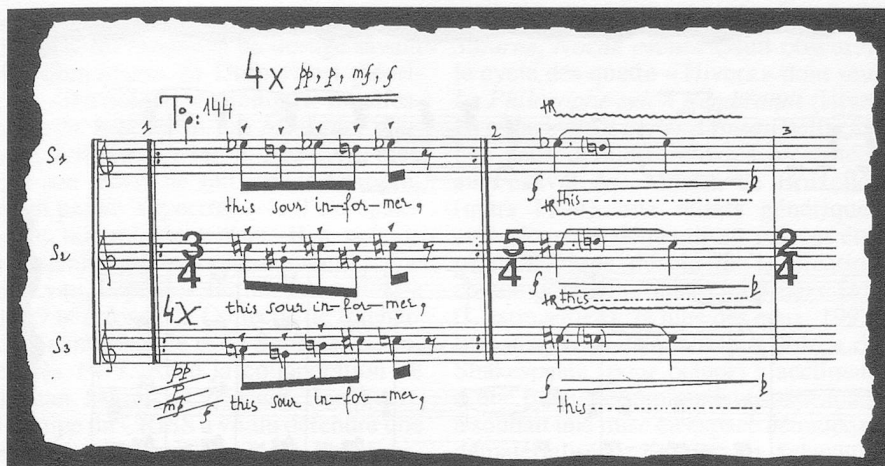 4x pp, p, mf, f
To 144
1 2 3
S1
this sour in-for-mer,
f this p
S2 3/4 5/4 2/4
this sour in-for-mer,
f this p
4X
S3
pp
p
mf
f
this sour in-for-mer,
f this p